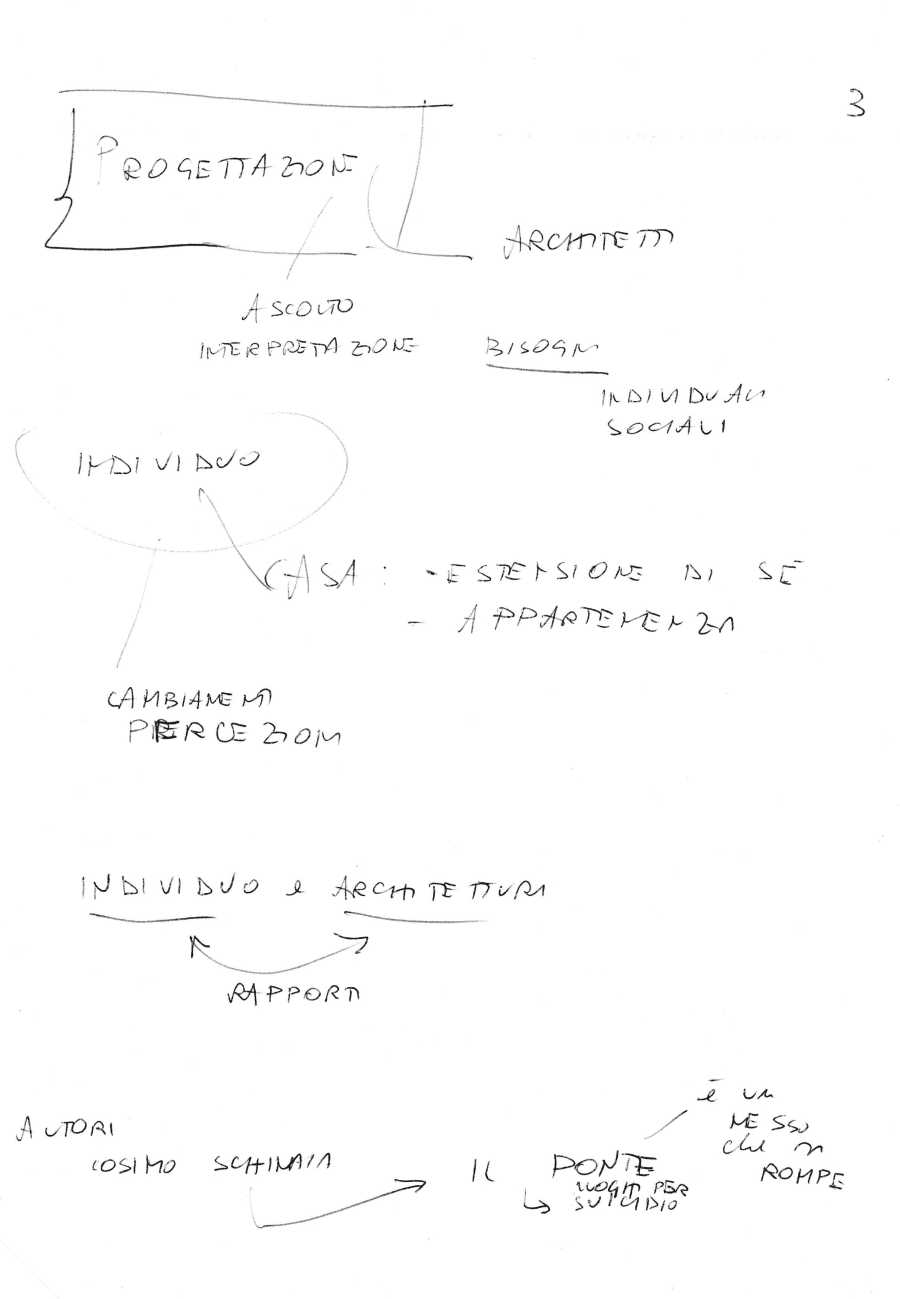 3
PROGETTAZIONE
ARCHITETTI
ASCOLTO
INTERPRETAZIONE BISOGNI
INDIVIDUALI
SOCIALI
INDIVIDUO
CASA: - ESTENSIONE DI SÉ
- APPARTENENZA
CAMBIAMENTI
PERCEZIONI
INDIVIDUO e ARCHITETTURA
RAPPORTI
è un
NESSO
che si
ROMPE
AUTORI
COSIMO SCHINAIA
IL PONTE
LUOGHI PER
SUICIDIO